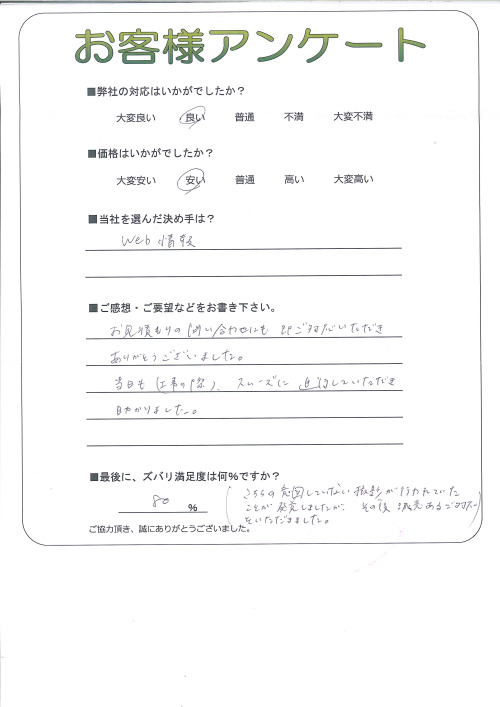 お客様アンケート
■弊社の対応はいかがでしたか？
大変良い 良い 普通 不満 大変不満
■価格はいかがでしたか？
大変安い 安い 普通 高い 大変高い
■当社を選んだ決め手は？
Web 情報
■ご感想・ご要望などをお書き下さい。
お見積もりの問い合わせにも ご対応いただき
ありがとうございました。
当日も(工事の際)、スムーズに していただき
助かりました。
■最後に、ズバリ満足度は何%ですか？
80 %
(こちらの意図していない が行われていた
ことが発覚しましたが、その後 あるご対応
をいただきました。
ご協力頂き、誠にありがとうございました。